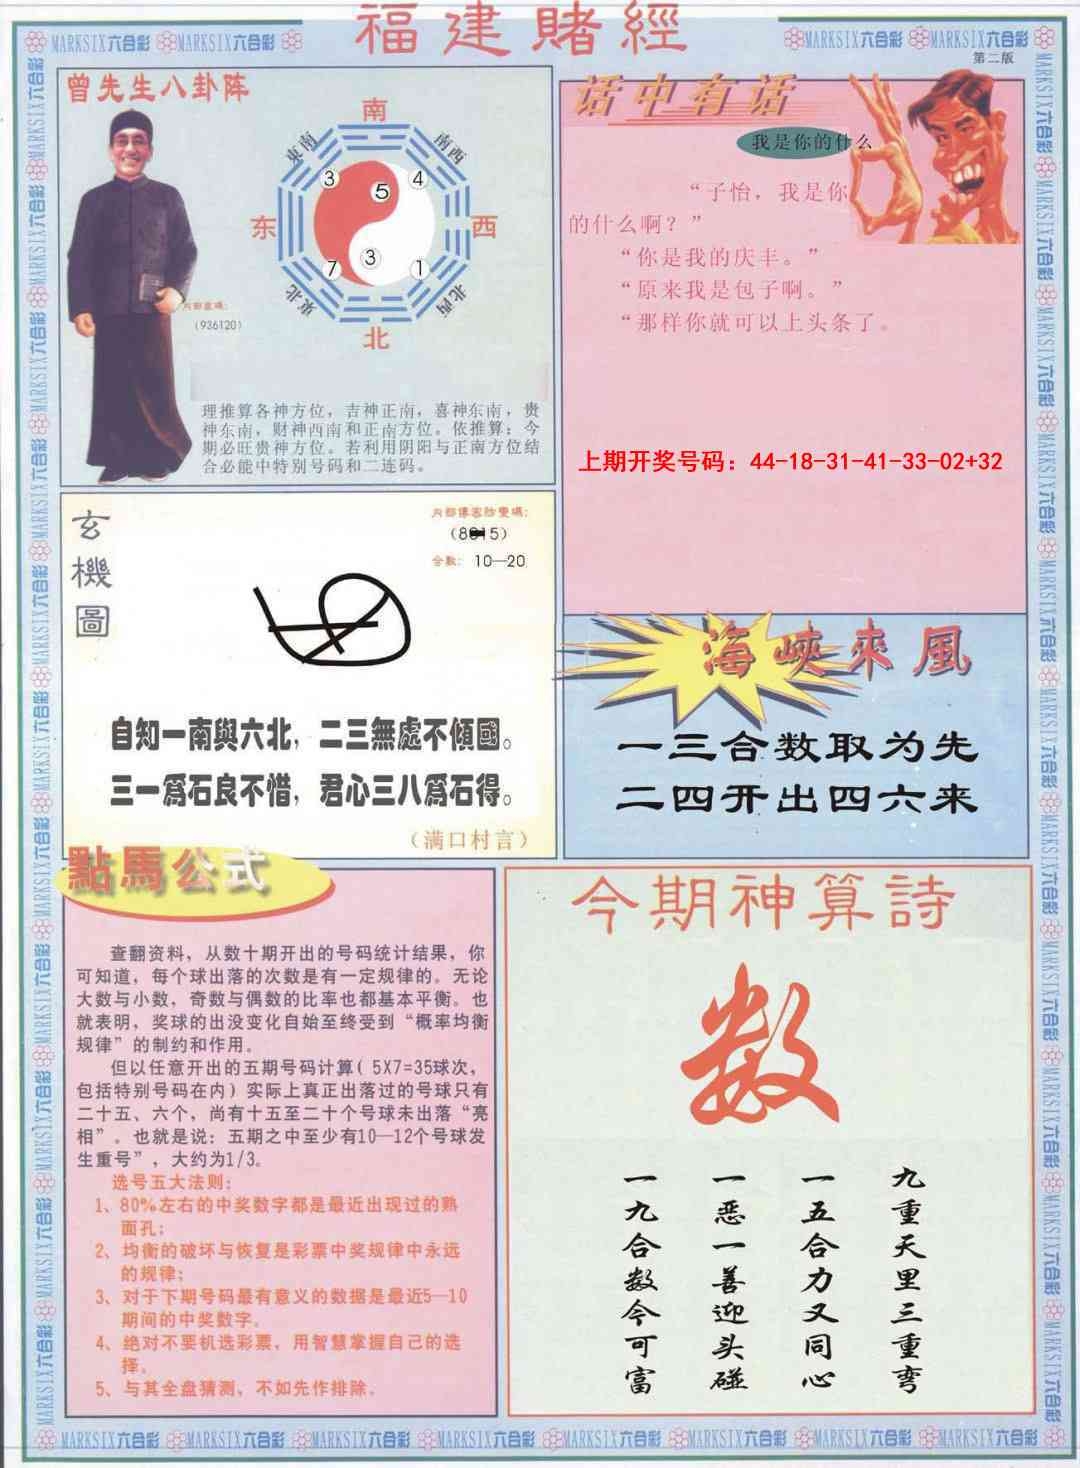 福建賭經
MARKSIX六合彩 MARKSIX六合彩
MARKSIX六合彩 MARKSIX六合彩
第二版
曾先生八卦阵
南
東南
南西
3
5
4
东
西
7
3
1
東北
北西
北
(936120)
理推算各神方位，吉神正南，喜神东南，贵
神东南，财神西南和正南方位。依推算：今
期必旺贵神方位。若利用阴阳与正南方位结
合必能中特别号码和二连码。
话中有话
我是你的什么
“子怡，我是你
的什么啊？”
“你是我的庆丰。”
“原来我是包子啊。”
“那样你就可以上头条了。
上期开奖号码：44-18-31-41-33-02+32
玄
機
圖
合数： 10—20
自知一南與六北，二三無處不傾國。
三一爲石良不惜，君心三八爲石得。
（满口村言）
海峽來風
一三合数取为先
二四开出四六来
點馬公式
查翻资料，从数十期开出的号码统计结果，你
可知道，每个球出落的次数是有一定规律的。无论
大数与小数，奇数与偶数的比率也都基本平衡。也
就表明，奖球的出没变化自始至终受到“概率均衡
规律”的制约和作用。
但以任意开出的五期号码计算（5X7=35球次，
包括特别号码在内）实际上真正出落过的号球只有
二十五、六个，尚有十五至二十个号球未出落“亮
相”。也就是说：五期之中至少有10—12个号球发
生重号”，大约为1/3。
选号五大法则：
1、80%左右的中奖数字都是最近出现过的熟
面孔；
2、均衡的破坏与恢复是彩票中奖规律中永远
的规律；
3、对于下期号码最有意义的数据是最近5—10
期间的中奖数字。
4、绝对不要机选彩票，用智慧掌握自己的选
择。
5、与其全盘猜测，不如先作排除。
今期神算詩
数
九重天里三重弯
一五合力又同心
一恶一善迎头碰
一九合数今可富
MARKSIX六合彩 MARKSIX六合彩 MARKSIX六合彩 MARKSIX六合彩 MARKSIX六合彩 MARKSIX六合彩 MARKSIX六合彩 MARKSIX六合彩